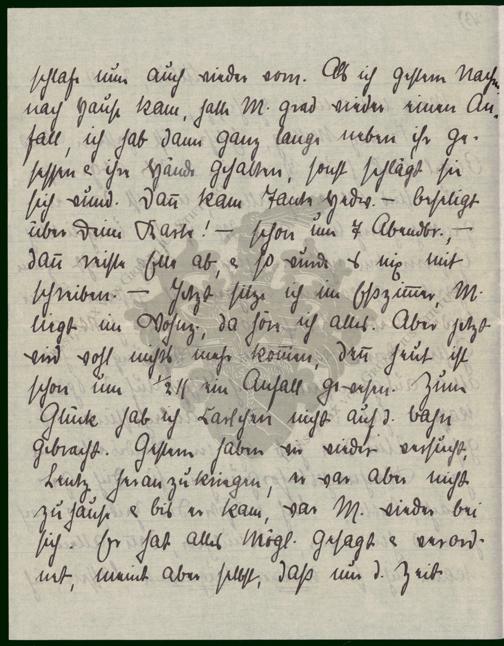 schlafe nun auch wieder vorn. Als ich gestern Nach-
nach Hause kam, hatte M. grad wieder einen An-
fall, ich hab dann ganz lange neben ihr ge-
sessen & ihre Hände gehalten, sonst schlägt sie
sich wund. Dan̄ kam Tante Hedw. – beseligt
über Deine Karte! – schon um 7 Abendbr., –
dan̄ reiste Elle ab, & so wurde es nix mit
schreiben. – Jetzt sitze ich im Eßzim̄er, M.
liegt im Wohnz., da hör ich alles. Aber jetzt
wird wohl nichts mehr kom̄en, den̄ heut ist
schon um 1/2 11 ein Anfall gewesen. Zum
Glück hab ich Carlchen nicht auf d. Bahn
gebracht. Gestern haben wir wieder versucht,
Lentz heranzukriegen, er war aber nicht
zuhause & bis er kam, war M. wieder bei
sich. Er hat alles Mögl. gesagt & verord-
net, meint aber selbst, daß nur d. Zeit